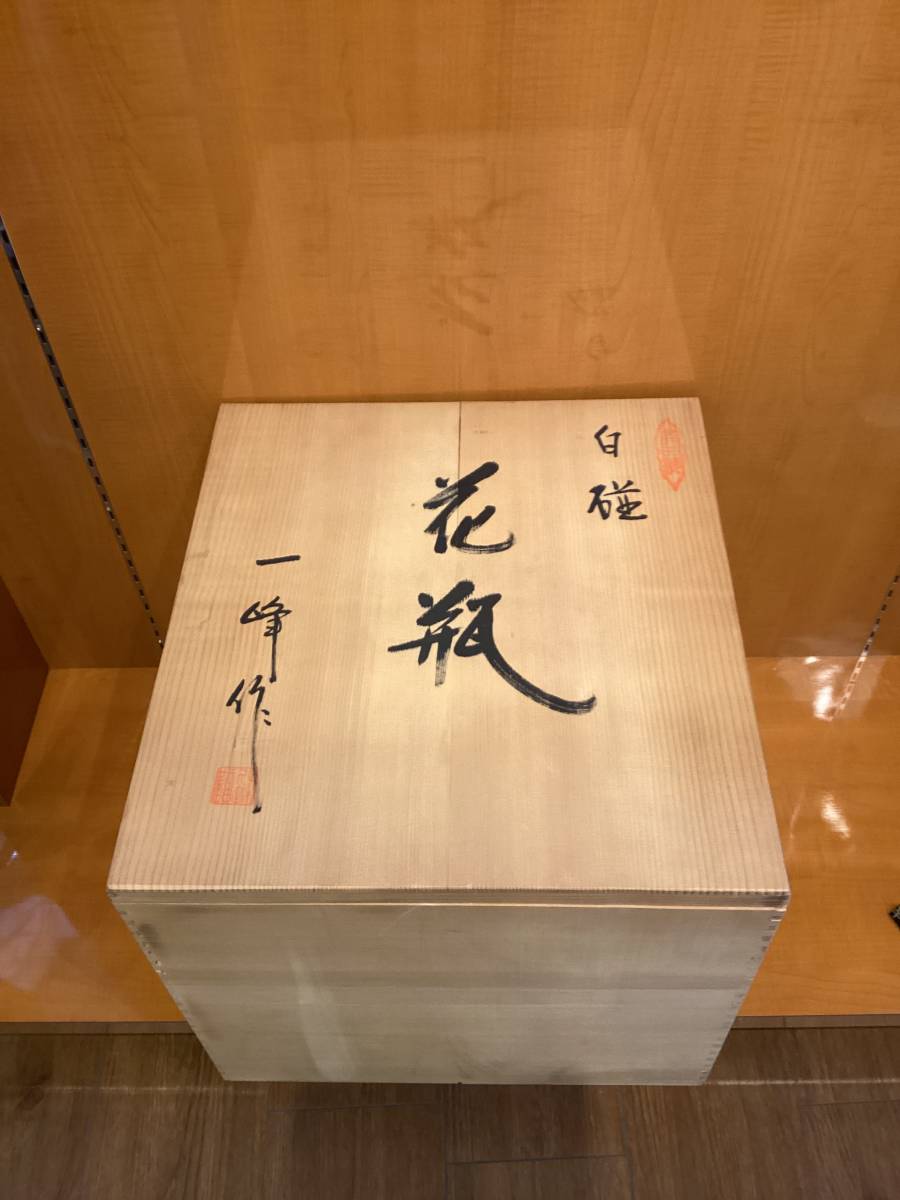 白磁
花瓶
一峰作